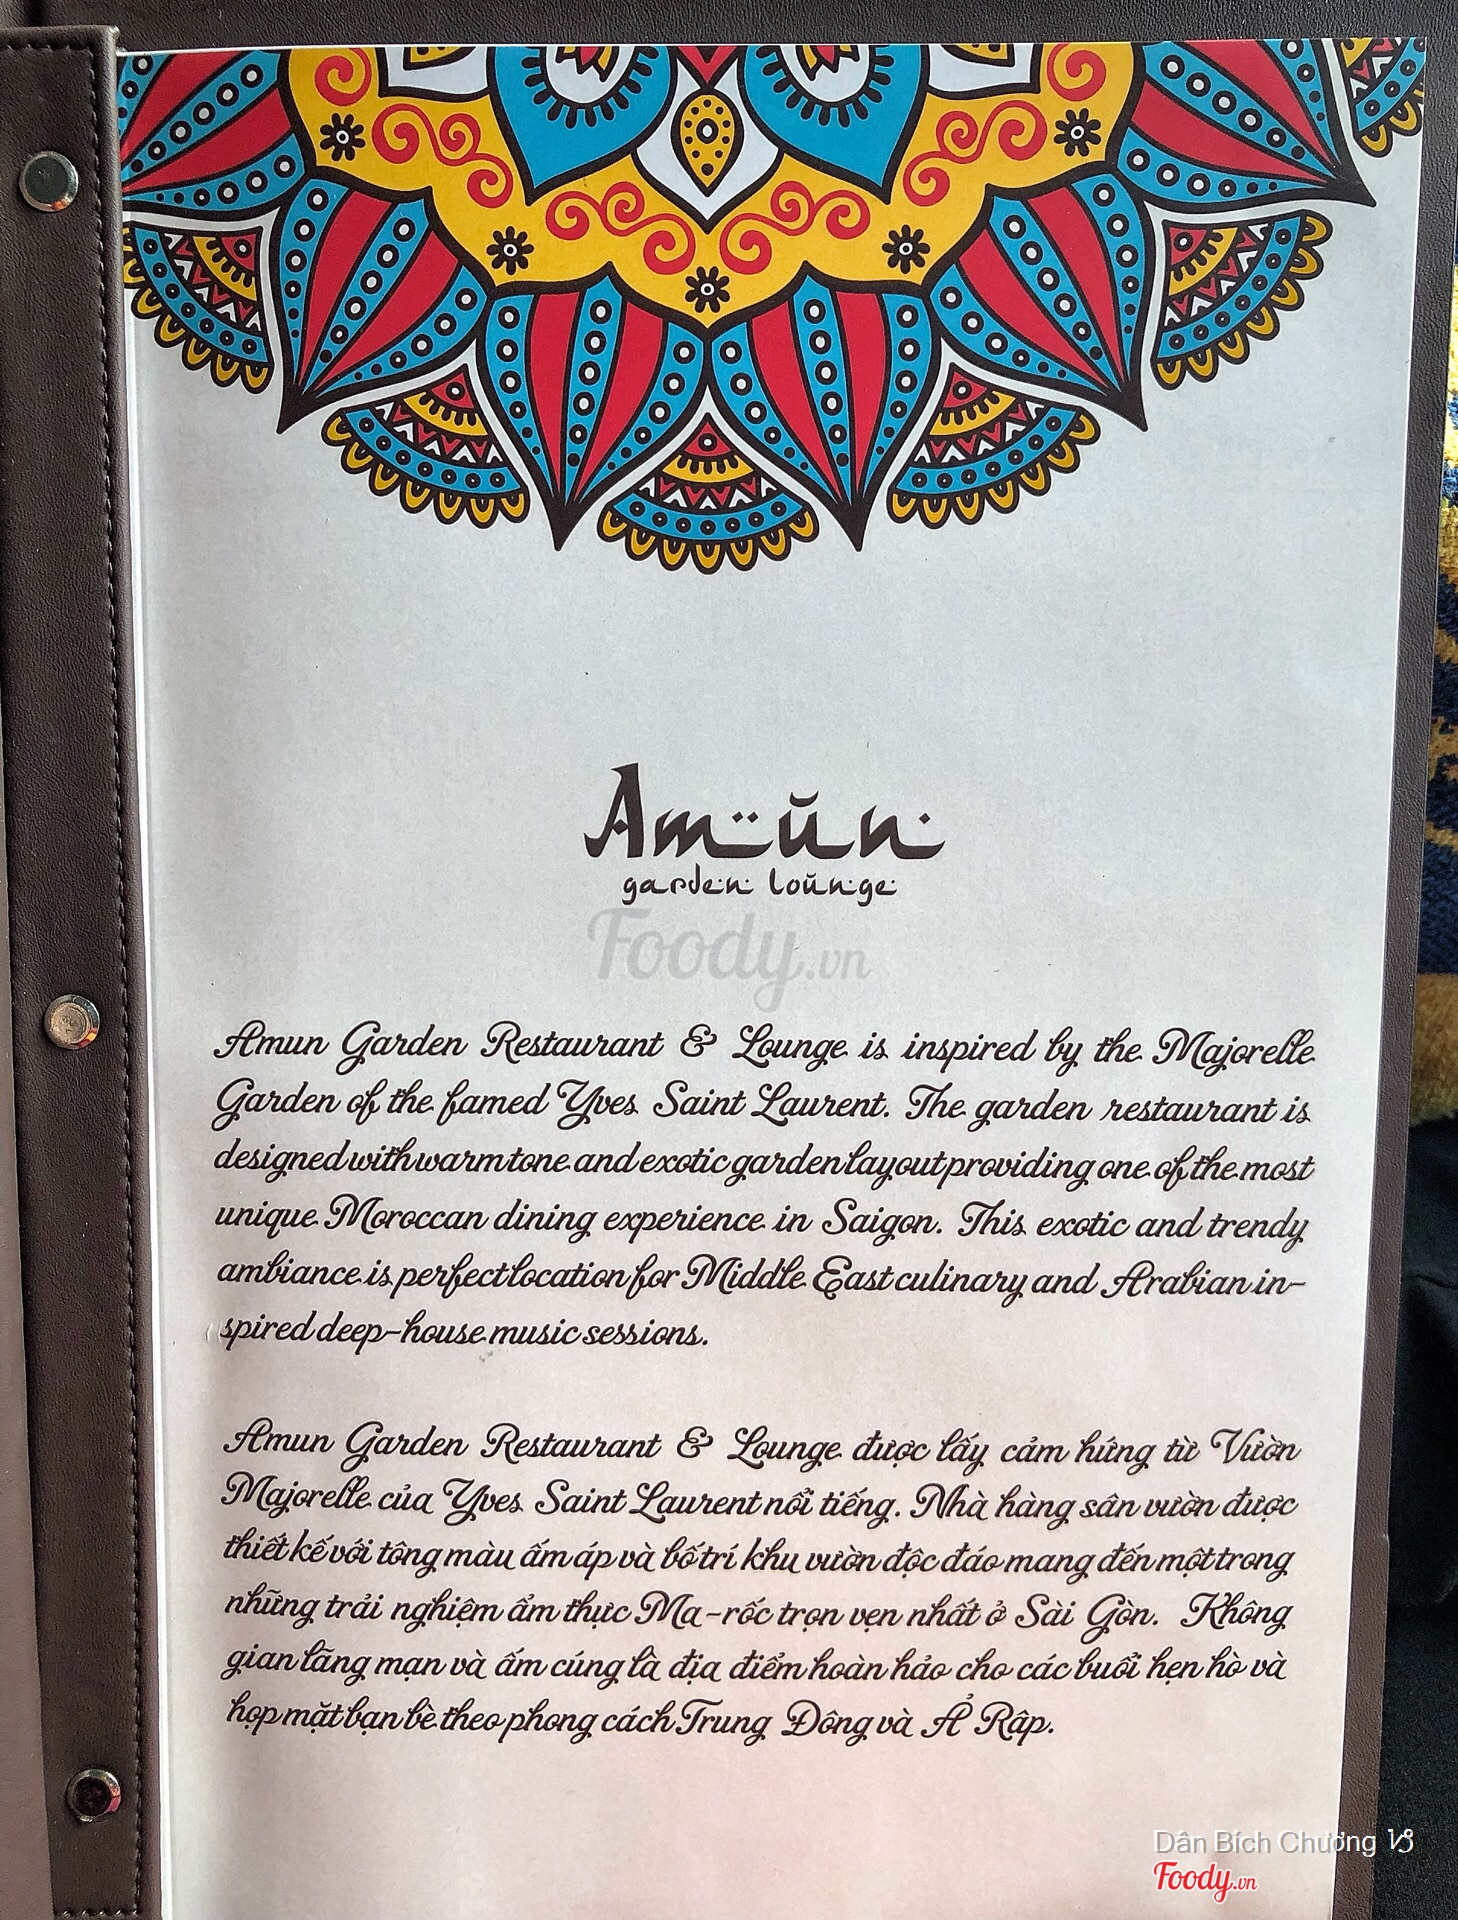 Amun
garden lounge
Foody.vn
Amun Garden Restaurant & Lounge is inspired by the Majorelle
Garden of the famed Yves Saint Laurent. The garden restaurant is
designed with warm tone and exotic garden layout providing one of the most
unique Moroccan dining experience in Saigon. This exotic and trendy
ambiance is perfect location for Middle East culinary and Arabian in-
spired deep-house music sessions.
Amun Garden Restaurant & Lounge được lấy cảm hứng từ Vườn
Majorelle của Yves Saint Laurent nổi tiếng. Nhà hàng sân vườn được
thiết kế với tông màu ấm áp và bố trí khu vườn độc đáo mang đến một trong
những trải nghiệm ẩm thực Ma-rốc trọn vẹn nhất ở Sài Gòn. Không
gian lãng mạn và ấm cúng là địa điểm hoàn hảo cho các buổi hẹn hò và
họp mặt bạn bè theo phong cách Trung Đông và Ả Rập.
Dân Bích Chương ♑
Foody.vn